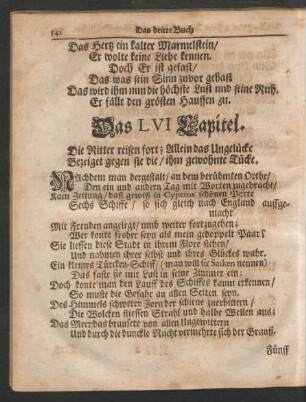 542 Das dritte Buch
Das Hertz ein kalter Marmelstein/
Er wolte keine Liebe kennen.
Doch Er ist gefast/
Das was sein Sinn zuvor gehast
Das wird ihm nun die höchste Lust und seine Ruh.
Er fällt den grösten Hauffen zu.
Das LVI Capitel.
Die Ritter reisen fort; Allein das Ungelücke
Bezeiget gegen sie die/ ihm gewohnte Tücke.
Nachdem man dergestalt/ an dem berühmten Orthe/
Den ein und andern Tag mit Worten zugebracht/
Kam Zeitung/ daß gewiß in Cyperus schönen Porte
Sechs Schiffe/ so sich gleich nach England auffge-
macht
Mit Freuden angelegt/ umb weiter fortzugehen:
Wer konte froher seyn als mein gedoppelt Paar?
Sie liessen diese Stadt in ihrem Flore stehen/
Und nahmen ihrer selbst und ihres Glückes wahr.
Ein kleines Türcken-Schiff/ (man will sie Saiken nennen)
Das faste sie mit Lust in seine Zimmer ein:
Doch konte man den Lauff des Schiffes kaum erkennen/
So muste die Gefahr an allen Seiten seyn.
Des Himmels schwerer Zorn der schiene zuerbittern/
Die Wolcken stiessen Strahl und halbe Wellen aus:
Das Meer das brausete von allen Ungewittern
Und durch die dunckle Nacht vermehrte sich der Grauß.
Fünff